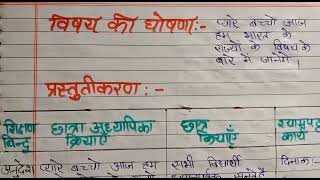 विषय की घोषणा:-
प्यारे बच्चो आज
हम भारत के
राज्यों के विषय के
बारे में जानेंगे।
प्रस्तुतीकरण:-
शिक्षण बिन्दु छात्रा अध्यापिका क्रियाएँ छात्र क्रियाएँ श्यामपट्ट कार्य
प्यारे बच्चो आज हम सभी विद्यार्थी दिनांक:-